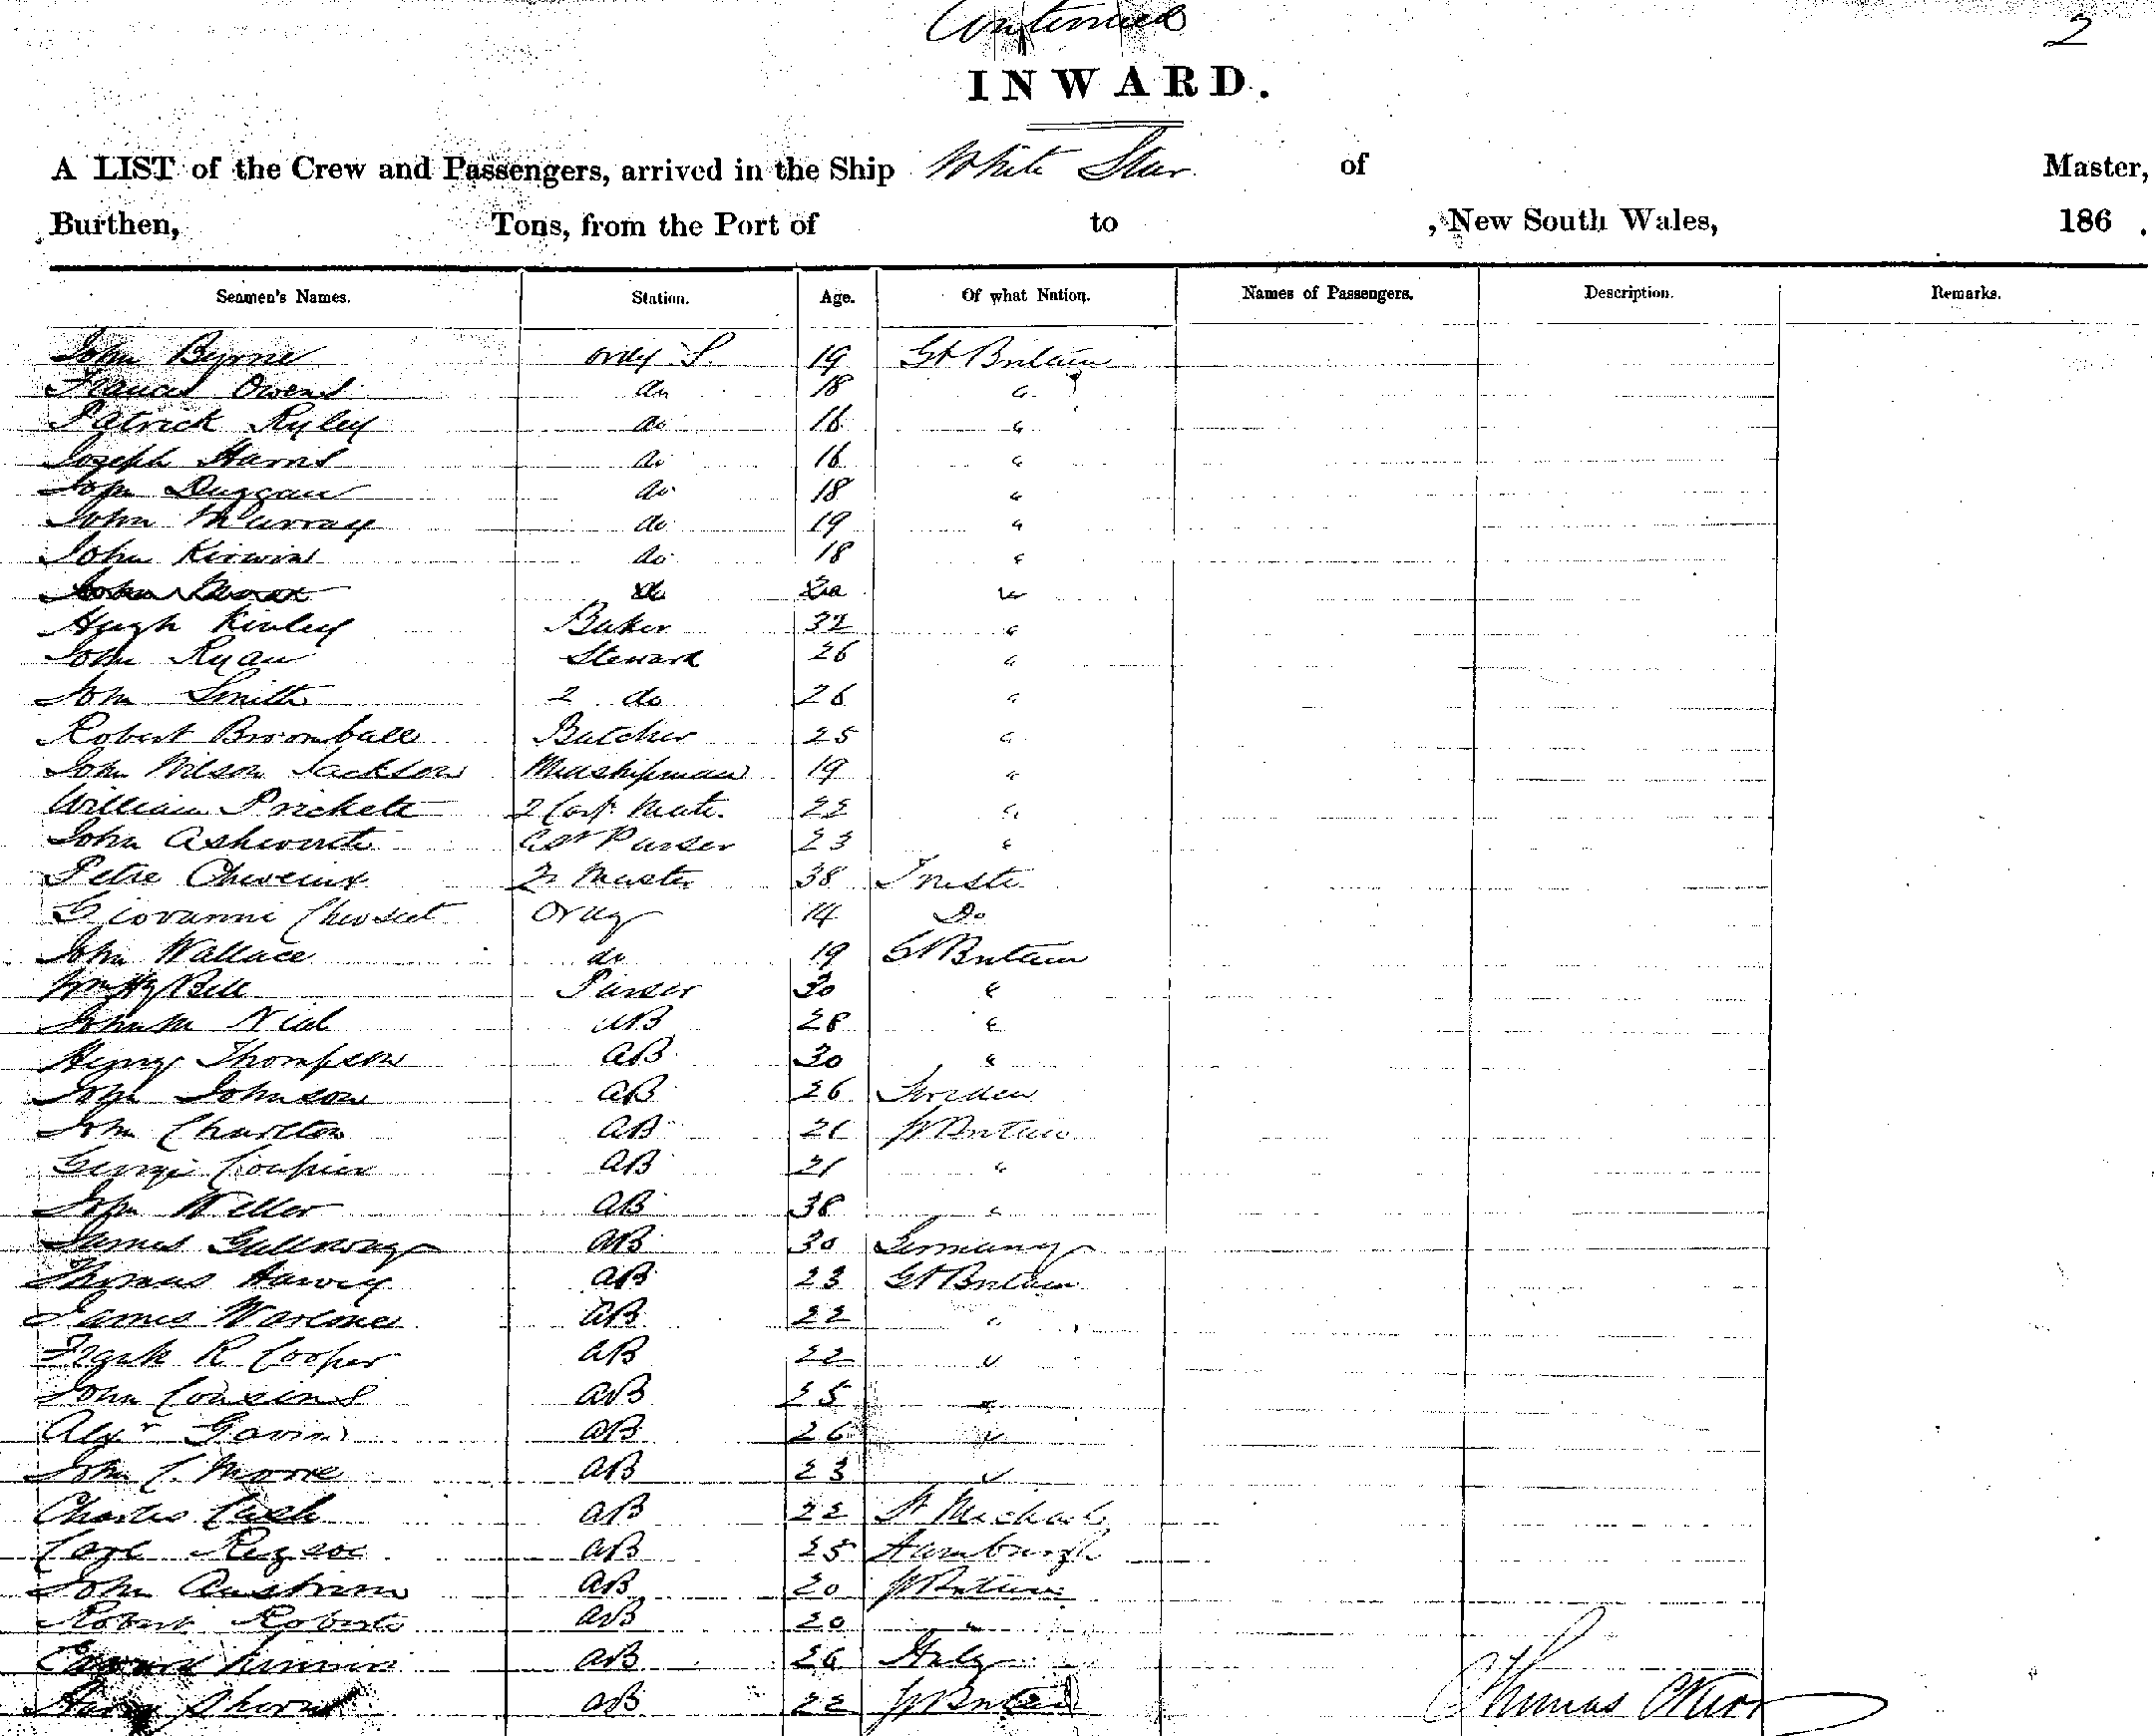 Continued
2
INWARD.
A LIST of the Crew and Passengers, arrived in the Ship White Star of Master,
Burthen, Tons, from the Port of to , New South Wales, 186 .
Seamen's Names. Station. Age. Of what Nation. Names of Passengers. Description. Remarks.
John Byrne Ordy S. 19 Gt Britain
Francis Owens do 18 "
Patrick Ryley do 16 "
Joseph Harris do 16 "
John Duggan do 18 "
John Murray do 19 "
John Kirwin do 18 "
John do "
Hugh Kinley Baker 32 "
John Ryan Steward 26 "
John Smith 2 do 26 "
Robert Broomhall Butcher 25 "
John Wilson Jackson Midshipman 19 "
William Prickett 2 Mate 22 "
John Ashworth Asst Purser 23 "
Petre 2r Master 38 Trieste
Giovanni Ordy 14 Do
John Wallace do 19 Gt Britain
Wm Hy Bell Purser 30 "
John M Nial AB 28 "
Henry Thompson AB 30 "
John Johnson AB 26 Sweden
John Charlton AB 21 Gt Britain
George AB 21 "
John Weller AB 38 "
James Galloway AB 30 Germany
Thomas Harvey AB 23 Gt Britain
James AB 22 "
Frank R Cooper AB 22 "
John Cousins AB 25 "
Alexr Gavin AB 26 "
John C. Moore AB 23 "
Charles AB 22 St Michaels
Carl AB 25 Hamburgh
John AB 20 Gt Britain
Robert Roberts AB 20 "
Edward AB 26 Italy
Henry AB 22 Gt Britain
Thomas Kerr